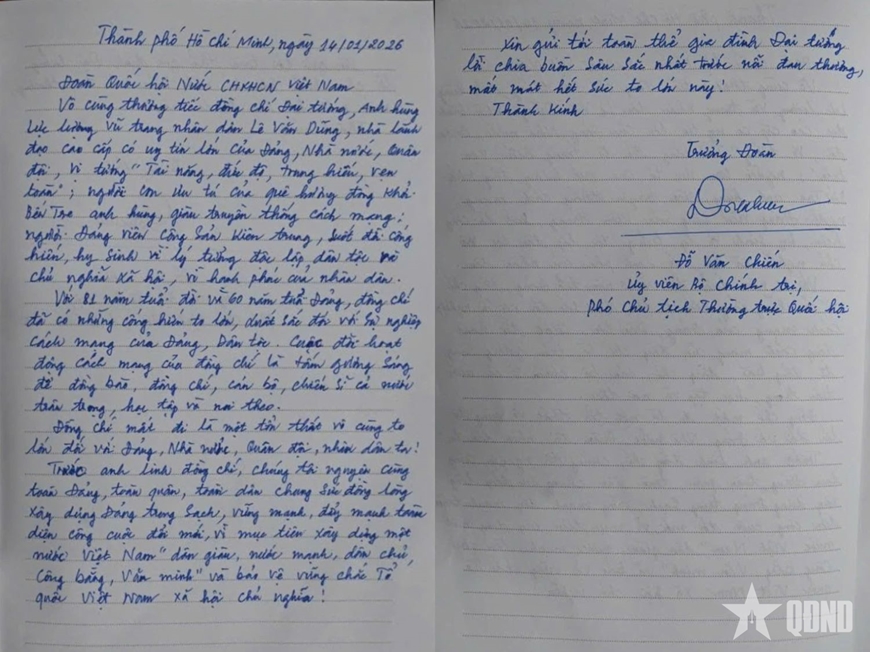 Thành phố Hồ Chí Minh, ngày 14/01/2026
Đoàn Quốc hội Nước CHXHCN Việt Nam
Vô cùng thương tiếc đồng chí Đại tướng, Anh hùng
Lực lượng vũ trang nhân dân Lê Văn Dũng, nhà lãnh
đạo cao cấp có uy tín lớn của Đảng, Nhà nước, Quân
đội, vị tướng "Tài năng, đức độ, trung hiếu, vẹn
toàn"; người con ưu tú của quê hương đồng khởi
Bến Tre anh hùng, giàu truyền thống cách mạng;
người Đảng viên Cộng sản kiên trung, suốt đời cống
hiến, hy sinh vì lý tưởng độc lập dân tộc và
chủ nghĩa xã hội, vì hạnh phúc của nhân dân.
Với 81 năm tuổi đời và 60 năm tuổi Đảng, đồng chí
đã có những cống hiến to lớn, xuất sắc đối với sự nghiệp
cách mạng của Đảng, Dân tộc. Cuộc đời hoạt
động cách mạng của đồng chí là tấm gương sáng
để đồng bào, đồng chí, cán bộ, chiến sĩ cả nước
trân trọng, học tập và noi theo.
Đồng chí mất đi là một tổn thất vô cùng to
lớn đối với Đảng, Nhà nước, Quân đội, nhân dân ta!
Trước anh linh đồng chí, chúng tôi nguyện cùng
toàn Đảng, toàn quân, toàn dân chung sức đồng lòng
xây dựng Đảng trong sạch, vững mạnh, đẩy mạnh toàn
diện công cuộc đổi mới, vì mục tiêu xây dựng một
nước Việt Nam "dân giàu, nước mạnh, dân chủ,
Công bằng, Văn minh" và bảo vệ vững chắc Tổ
quốc Việt Nam xã hội chủ nghĩa!
Xin gửi tới toàn thể gia đình Đại tướng
lời chia buồn sâu sắc nhất trước nỗi đau thương,
mất mát hết sức to lớn này!
Thành Kính
Trưởng Đoàn
Đỗ Văn Chiến
Ủy viên Bộ Chính trị,
Phó Chủ tịch Thường trực Quốc hội
QĐND